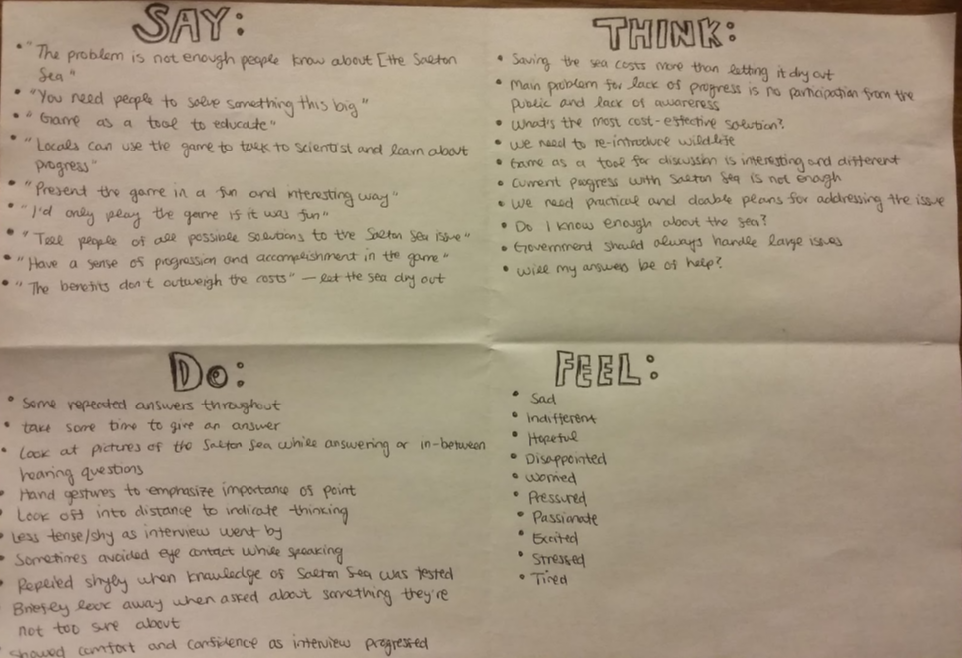 SAY:
• "The problem is not enough people know about [the Salton
Sea"
• "You need people to solve something this big"
• "Game as a tool to educate"
• "Locals can use the game to talk to scientist and learn about
progress"
• "Present the game in a fun and interesting way"
• "I'd only play the game if it was fun"
• "Tell people of all possible solutions to the Salton Sea issue"
• "Have a sense of progression and accomplishment in the game"
• "The benefits don't outweigh the costs" — let the sea dry out
THINK:
• Saving the sea costs more than letting it dry out
• Main problem for lack of progress is no participation from the
public and lack of awareness
• What's the most cost-effective solution?
• We need to re-introduce wildlife
• Game as a tool for discussion is interesting and different
• Current progress with Salton Sea is not enough
• We need practical and doable plans for addressing the issue
• Do I know enough about the sea?
• Government should always handle large issues
• Will my answers be of help?
Do:
• Some repeated answers throughout
• take some time to give an answer
• Look at pictures of the Salton Sea while answering or in-between
hearing questions
• Hand gestures to emphasize importance of point
• Look off into distance to indicate thinking
• Less tense/shy as interview went by
• Sometimes avoided eye contact while speaking
• Replied shyly when knowledge of Salton Sea was tested
• Briefly look away when asked about something they're
not too sure about
• Showed comfort and confidence as interview progressed
FEEL:
• Sad
• Indifferent
• Hopeful
• Disappointed
• Worried
• Pressured
• Passionate
• Excited
• Stressed
• Tired